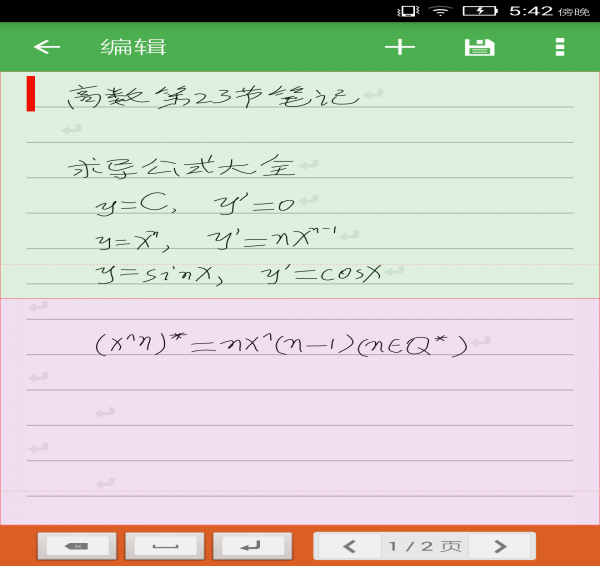 5:42 傍晚
编辑
高数第23节笔记
求导公式大全
y=C, y'=0
y=xⁿ, y'=nxⁿ⁻¹
y=sinx, y'=cosx
(x^n)*=nx^(n-1)(n∈Q*)
1/2页